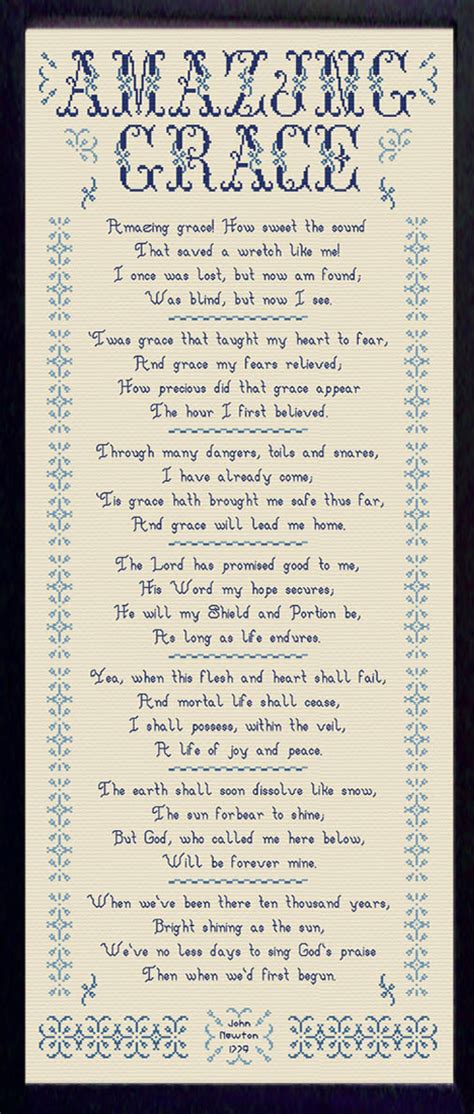 AMAZING
GRACE
Amazing grace! How sweet the sound
That saved a wretch like me!
I once was lost, but now am found;
Was blind, but now I see.
'Twas grace that taught my heart to fear,
And grace my fears relieved;
How precious did that grace appear
The hour I first believed.
Through many dangers, toils and snares,
I have already come;
'Tis grace hath brought me safe thus far,
And grace will lead me home.
The Lord has promised good to me,
His Word my hope secures;
He will my Shield and Portion be,
As long as life endures.
Yea, when this flesh and heart shall fail,
And mortal life shall cease,
I shall possess, within the veil,
A life of joy and peace.
The earth shall soon dissolve like snow,
The sun forbear to shine;
But God, who called me here below,
Will be forever mine.
When we've been there ten thousand years,
Bright shining as the sun,
We've no less days to sing God's praise
Then when we'd first begun.
John
Newton
1779